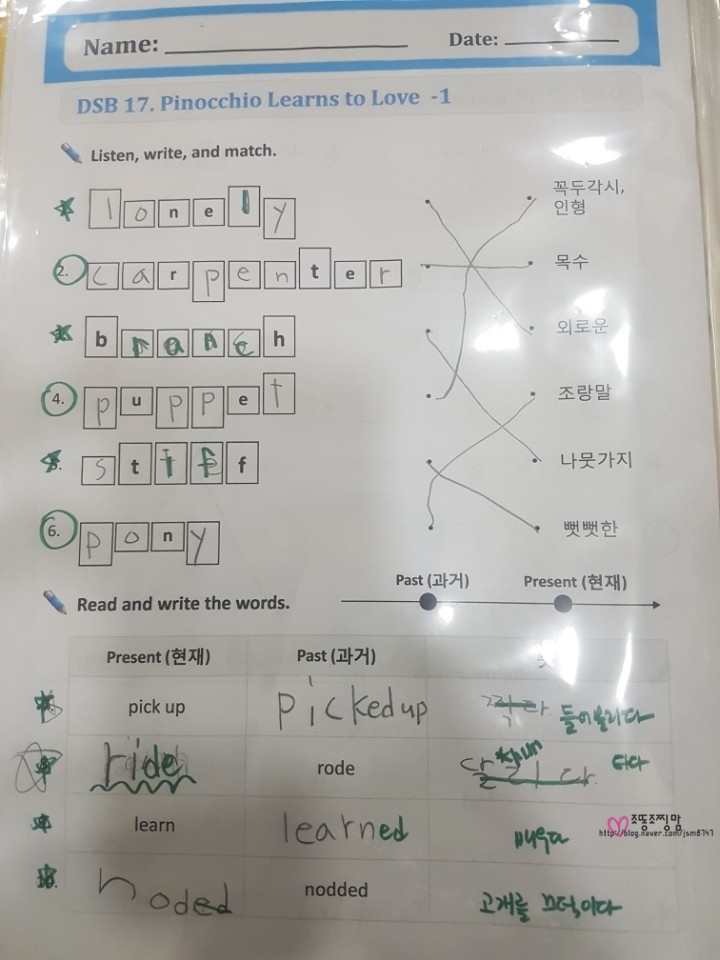 Name: Date:
DSB 17. Pinocchio Learns to Love -1
Listen, write, and match.
lonely 꼭두각시,
인형
2. carpenter 목수
branch 외로운
4. puppet 조랑말
stiff 나뭇가지
6. pony 뻣뻣한
Past (과거) Present (현재)
Read and write the words.
Present (현재) Past (과거) 뜻
pick up picked up 들어올리다
ride rode 달리다 run 타다
learn learned 배우다
noded nodded 고개를 끄덕이다
조뚱조찡맘
http://blog.naver.com/jsm8747